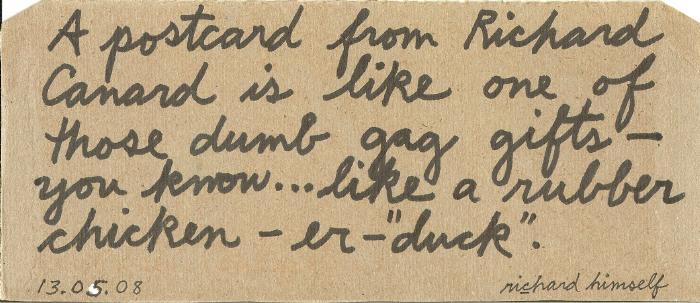 A postcard from Richard
Canard is like one of
those dumb gag gifts —
you know... like a rubber
chicken – er – "duck".
13.05.08 richard himself